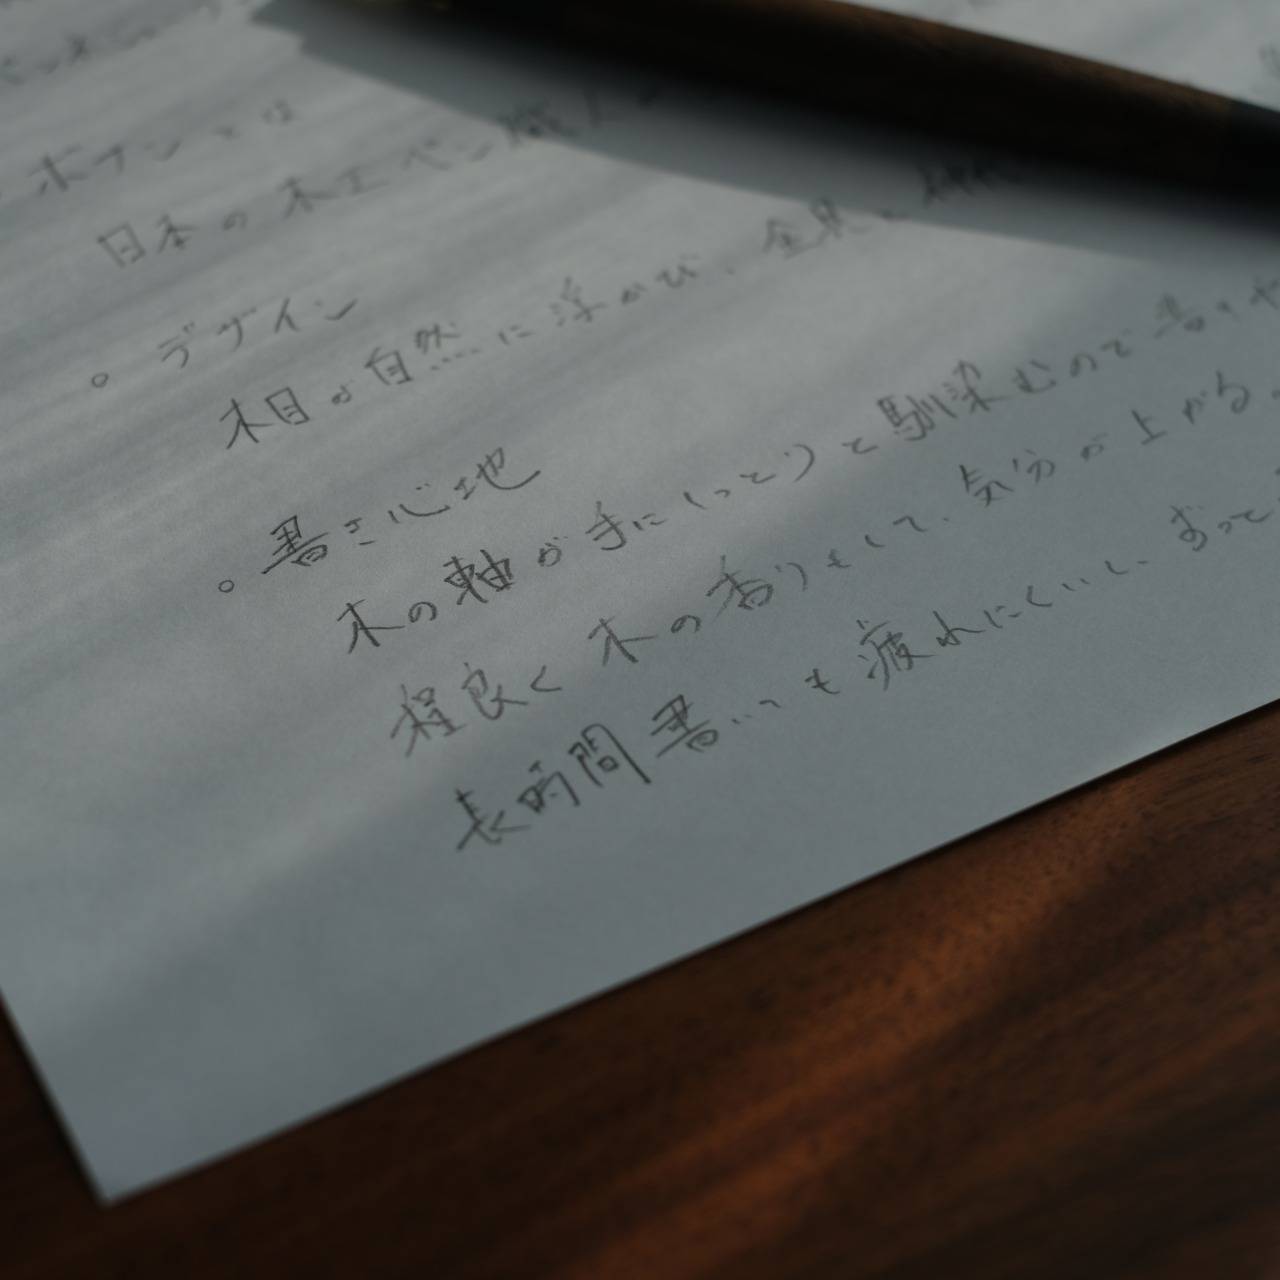 ボナンとは
日本の木工ペン職人
。デザイン
木目が自然に浮かび、金具と
。書き心地
木の軸が手にしっとりと馴染むので書きや
程良く木の香りもして、気分が上がる。
長時間書いても疲れにくいし、ずって